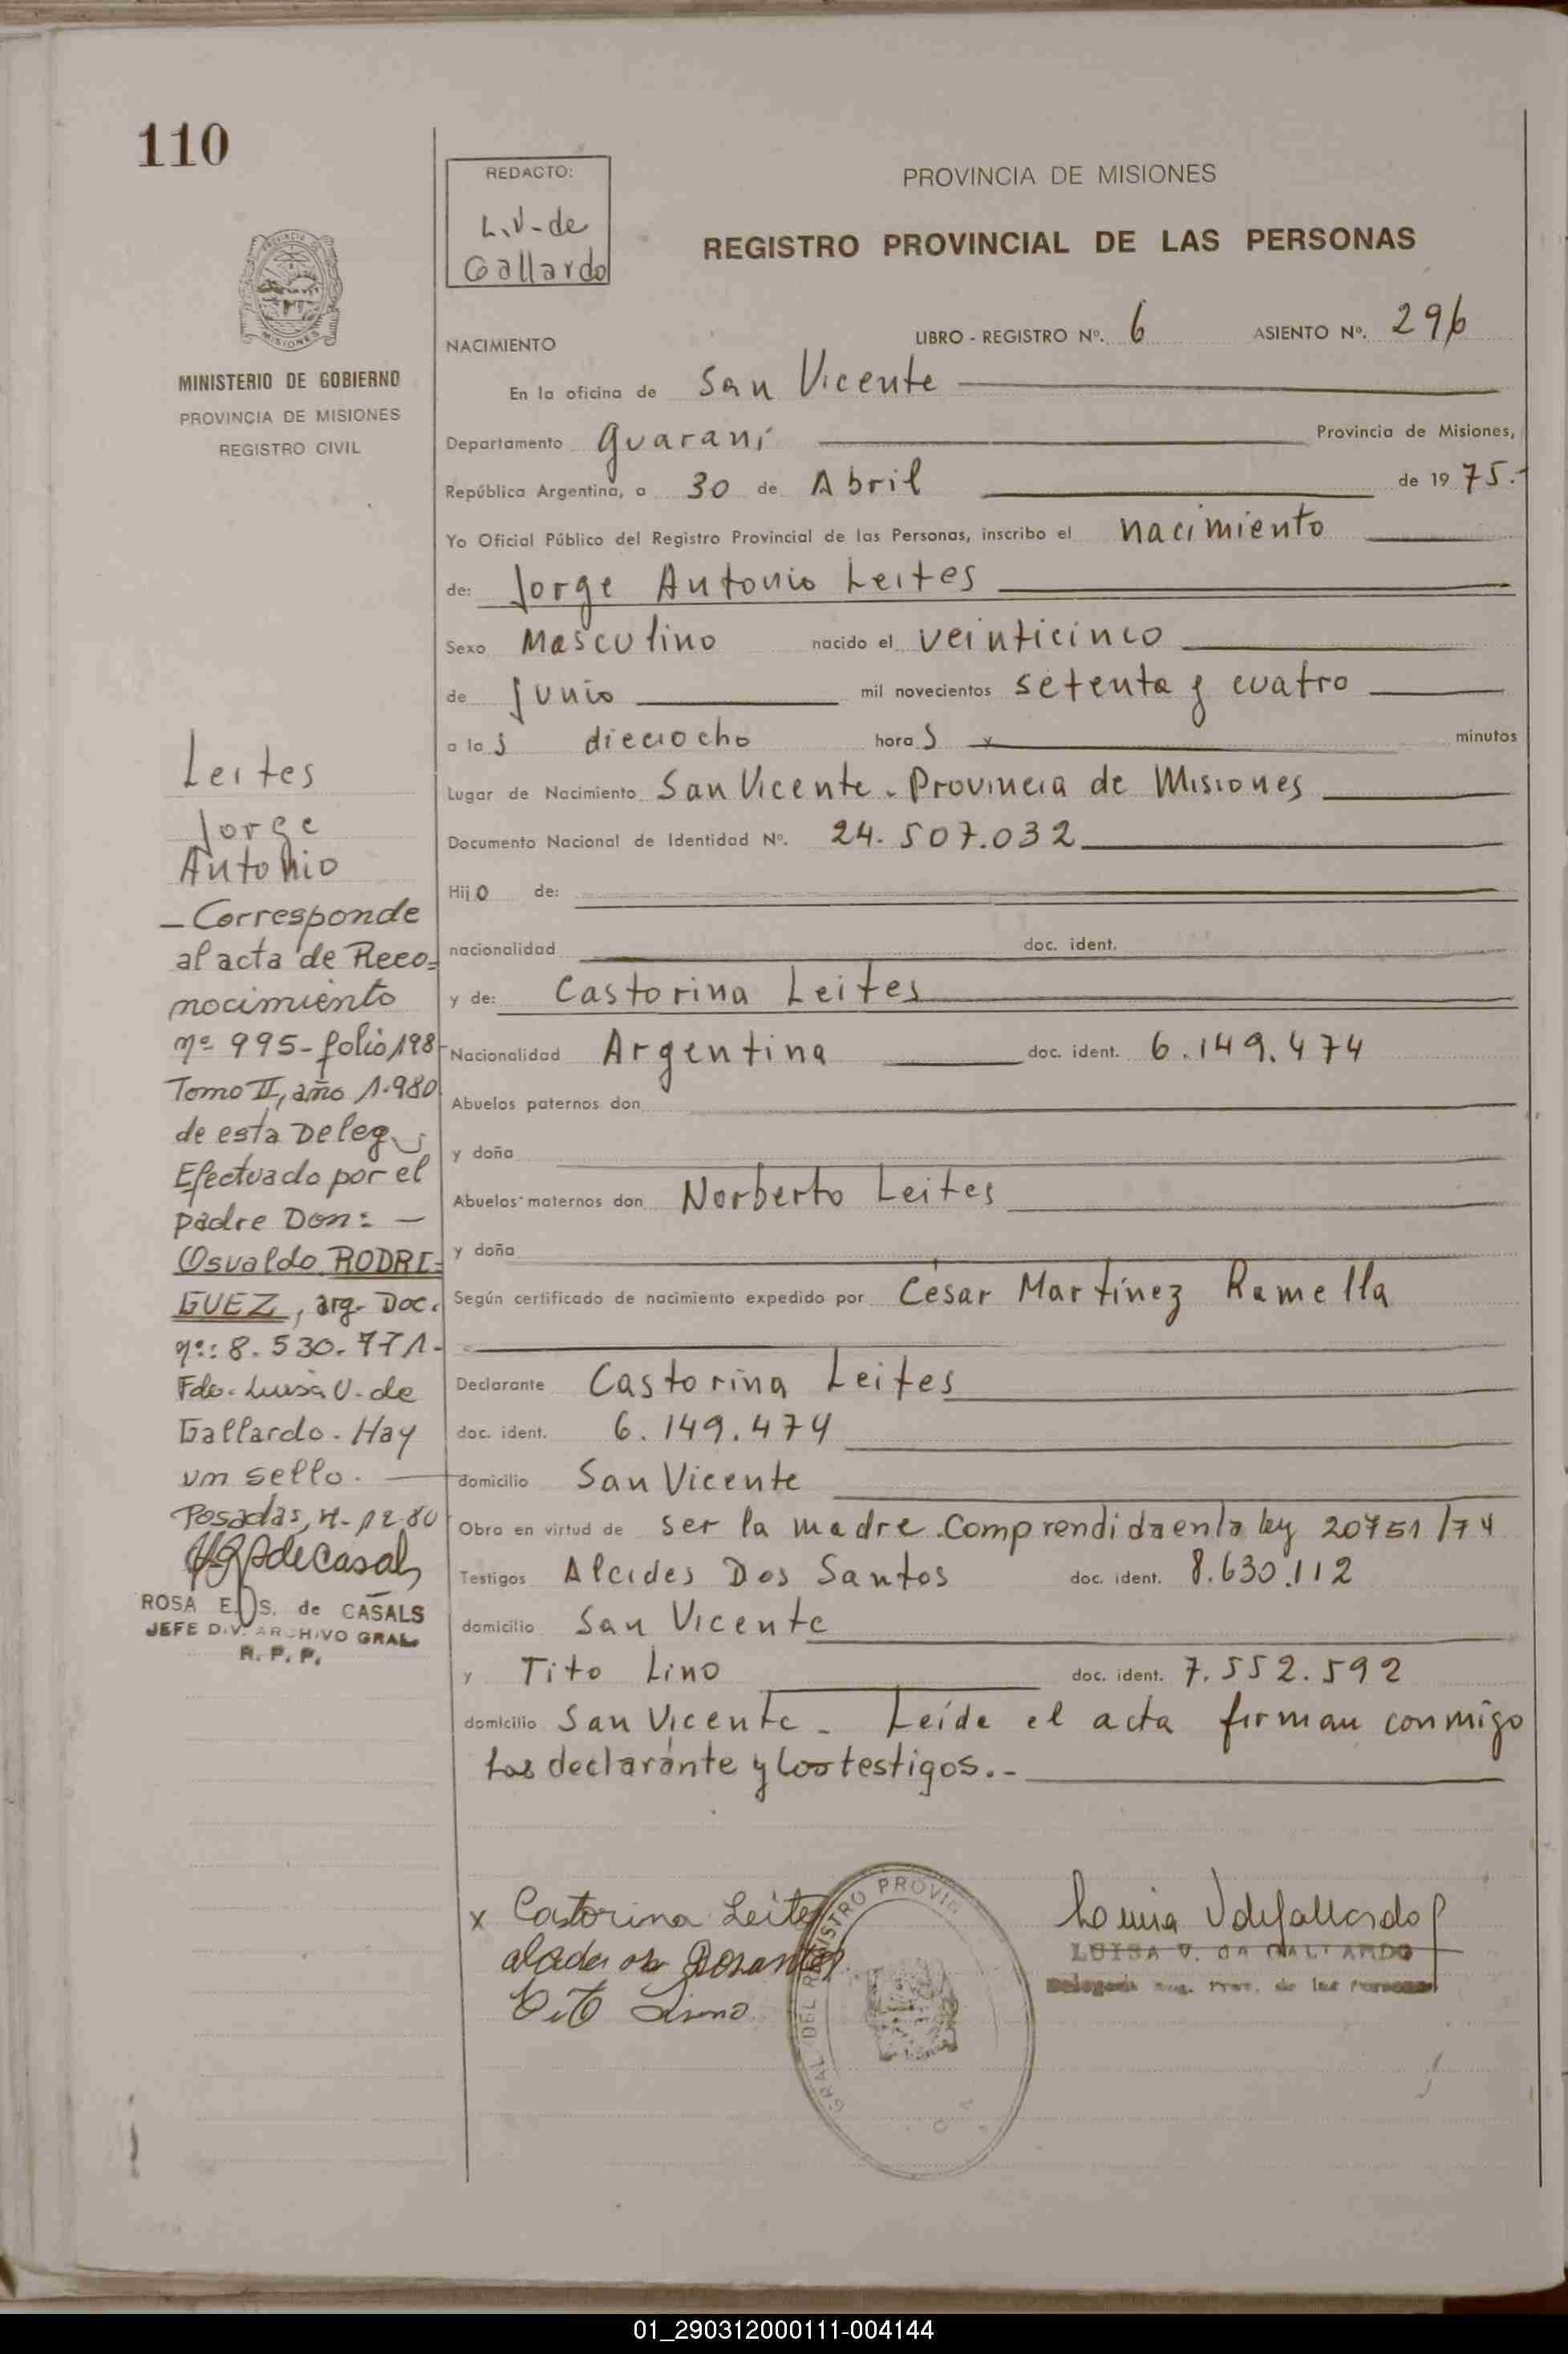 110
REDACTO:
L.V. de
Gallardo
PROVINCIA DE MISIONES
REGISTRO PROVINCIAL DE LAS PERSONAS
MINISTERIO DE GOBIERNO
PROVINCIA DE MISIONES
REGISTRO CIVIL
Leites
Jorge
Antonio
- Corresponde
al acta de Reco=
nocimiento
nº 995- folio 198
Tomo II, año 1.980
de esta Deleg.
Efectuado por el
padre Don: -
Osvaldo RODRI=
GUEZ, arg. Doc.
nº: 8.530.771.-
Fdo. Luisa V. de
Gallardo. Hay
un sello.
Posadas, 4-12-80
ROSA E. S. de CASALS
JEFE DIV. ARCHIVO GRAL.
R. P. P.
NACIMIENTO LIBRO - REGISTRO Nº. 6 ASIENTO Nº. 296
En la oficina de San Vicente
Departamento Guaraní Provincia de Misiones,
República Argentina, a 30 de Abril de 19 75.-
Yo Oficial Público del Registro Provincial de las Personas, inscribo el nacimiento
de: Jorge Antonio Leites
Sexo Masculino nacido el veinticinco
de Junio mil novecientos setenta y cuatro
a las dieciocho horas x minutos
Lugar de Nacimiento San Vicente - Provincia de Misiones
Documento Nacional de Identidad Nº. 24.507.032
Hijo de:
nacionalidad doc. ident.
y de: Castorina Leites
Nacionalidad Argentina doc. ident. 6.149.474
Abuelos paternos don
y doña
Abuelos maternos don Norberto Leites
y doña
Según certificado de nacimiento expedido por César Martínez Ramella
Declarante Castorina Leites
doc. ident. 6.149.474
domicilio San Vicente
Obra en virtud de ser la madre. Comprendida en la ley 20751/74
Testigos Alcides Dos Santos doc. ident. 8.630.112
domicilio San Vicente
y Tito Lino doc. ident. 7.552.592
domicilio San Vicente - Leída el acta firman conmigo
los declarante y los testigos.-
x Castorina Leites
Tito Lino
GRAL DEL REGISTRO PROVIN
LUISA V. DE GALLARDO
Delegada Reg. Prov. de las Personas
01_290312000111-004144